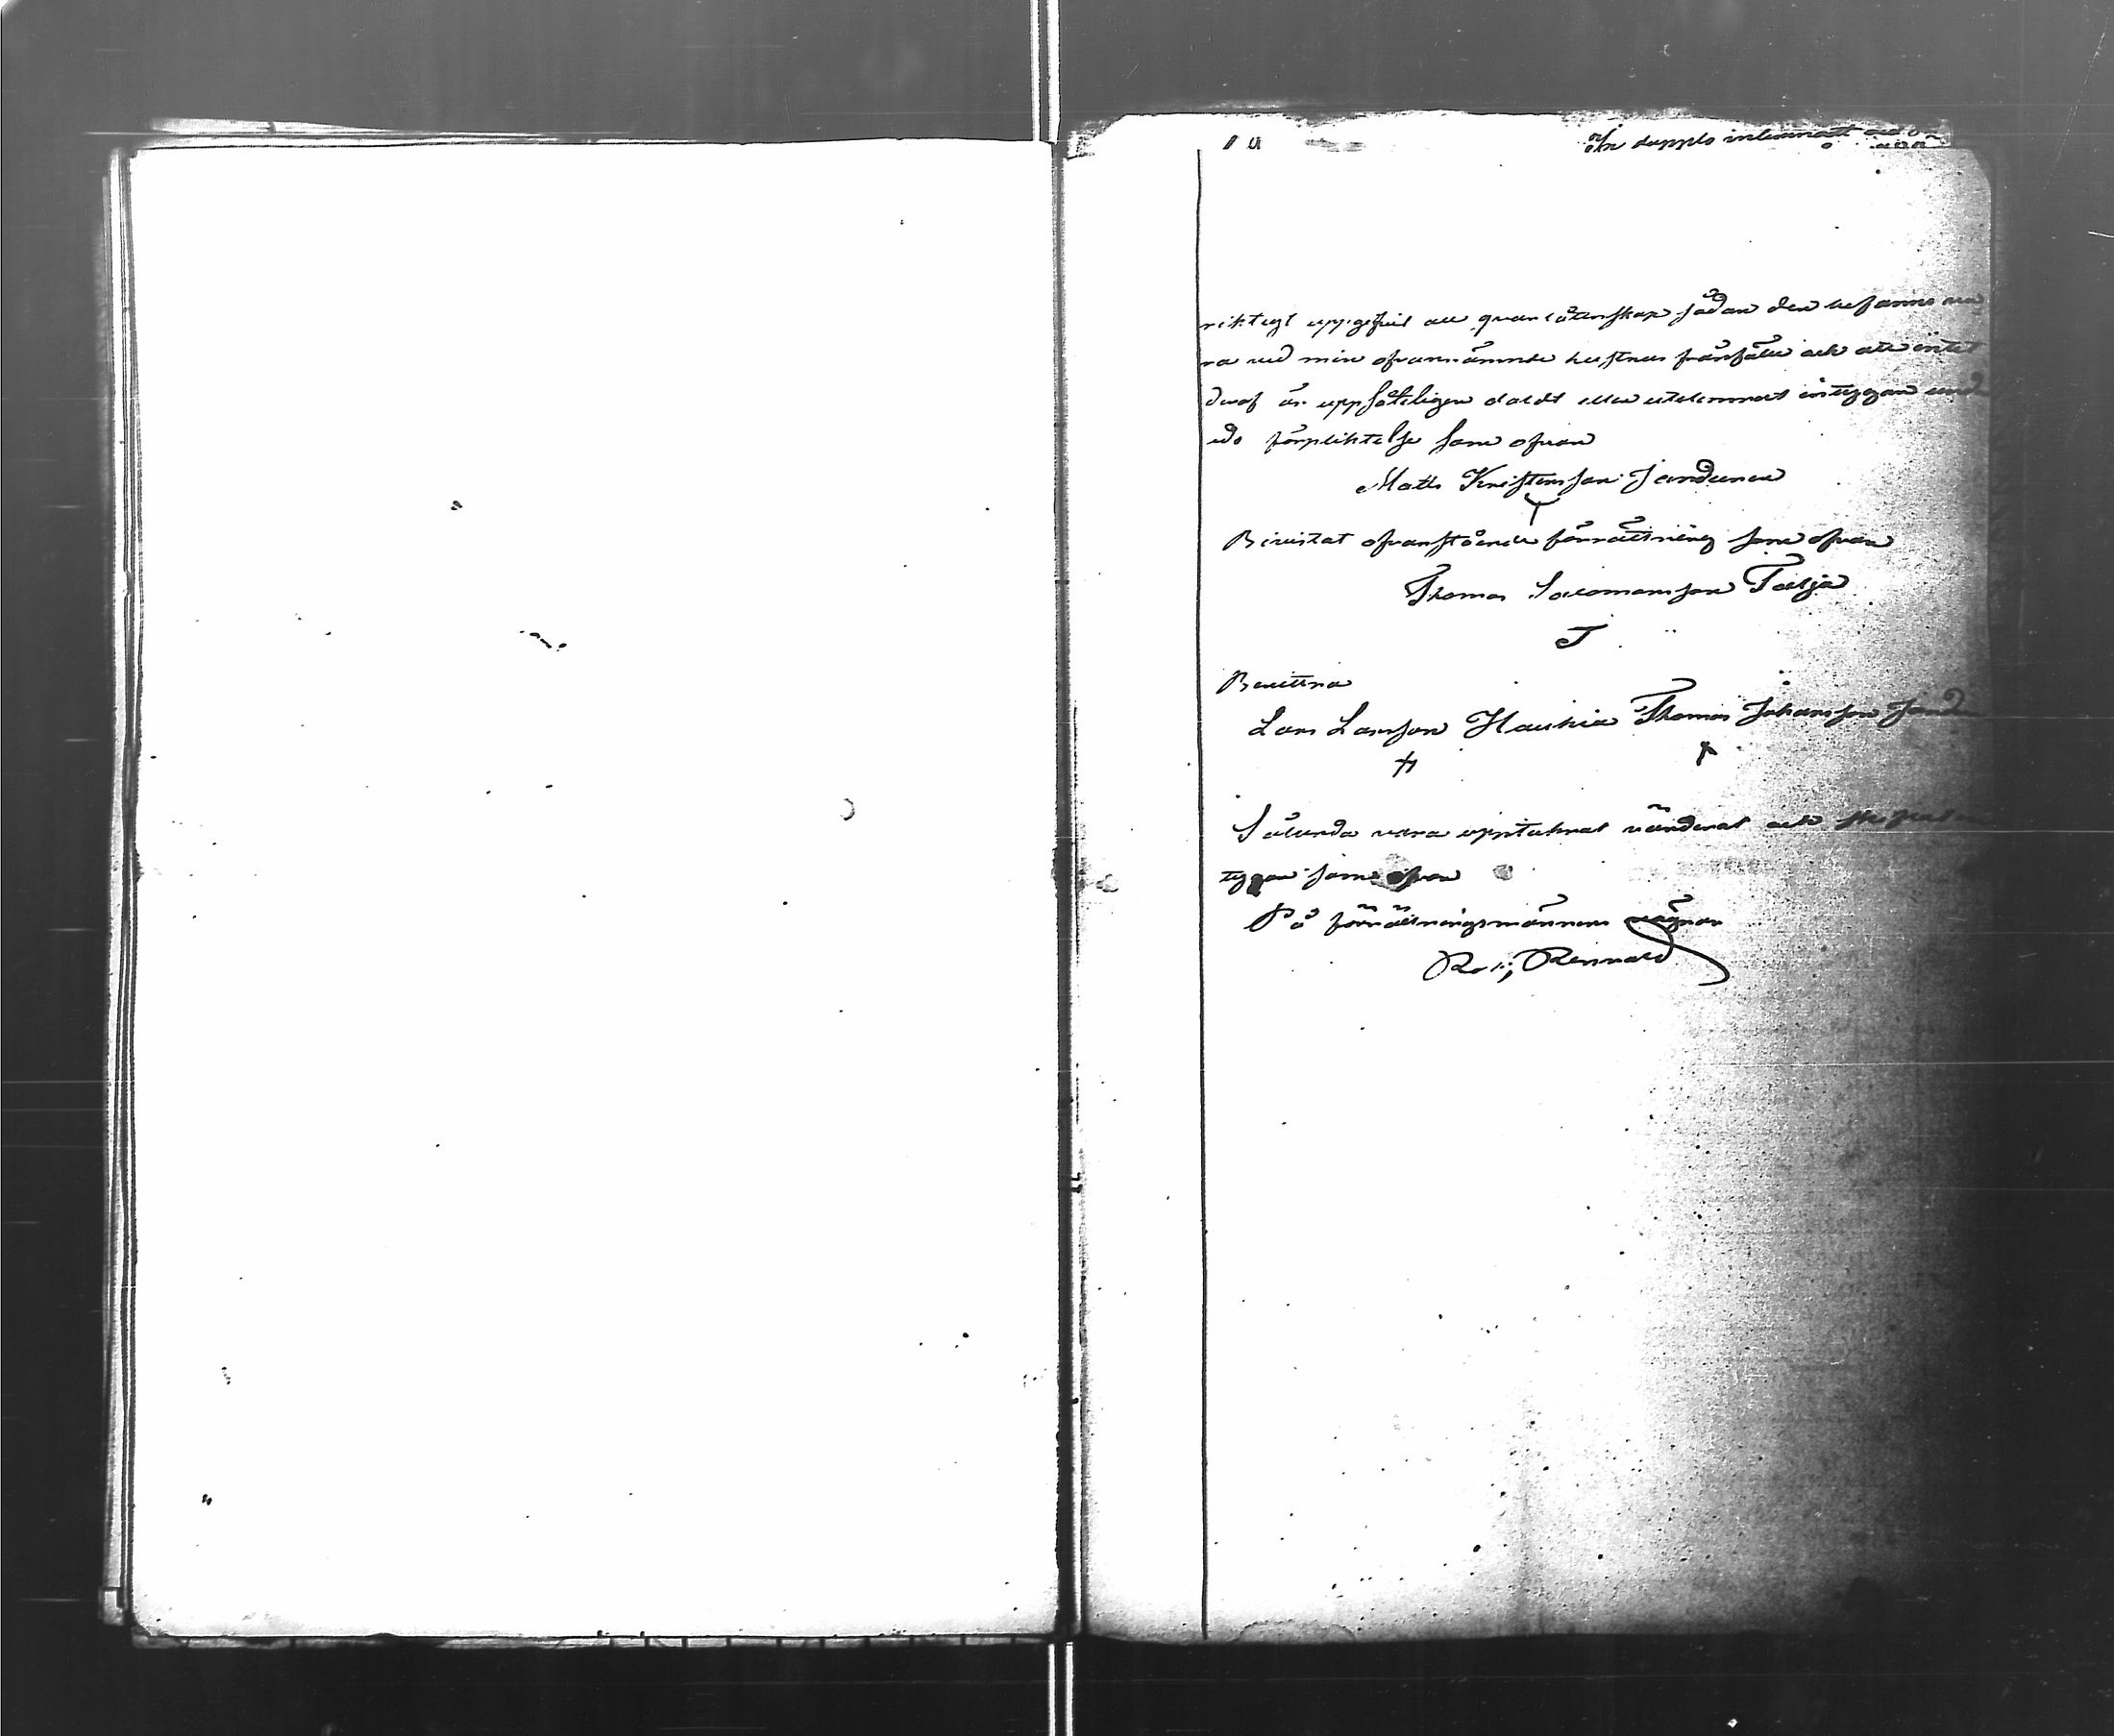 In dupplo inlemnadt
riktigt uppgifvit all qvarlåtenskap sådan den befanns va
ra vid min ofvannämnde hustrus frånfälle och att intet
deraf är uppsåteligen doldt eller utelemnat intygar under
eds förpliktelse som ofvan
Matts Kristersson Jandunen
Bivistat ofvanstående förrättning som ofvan
Thomas Salomonsson Talja
T
Bevittna
Lars Larsson Haukia Thomas Johansson Jandu
Sålunda vara upptaknat värderat och skrifvet in
tygar som ofvan
På förrättningsmännens vägnar
Rob; Rennvald